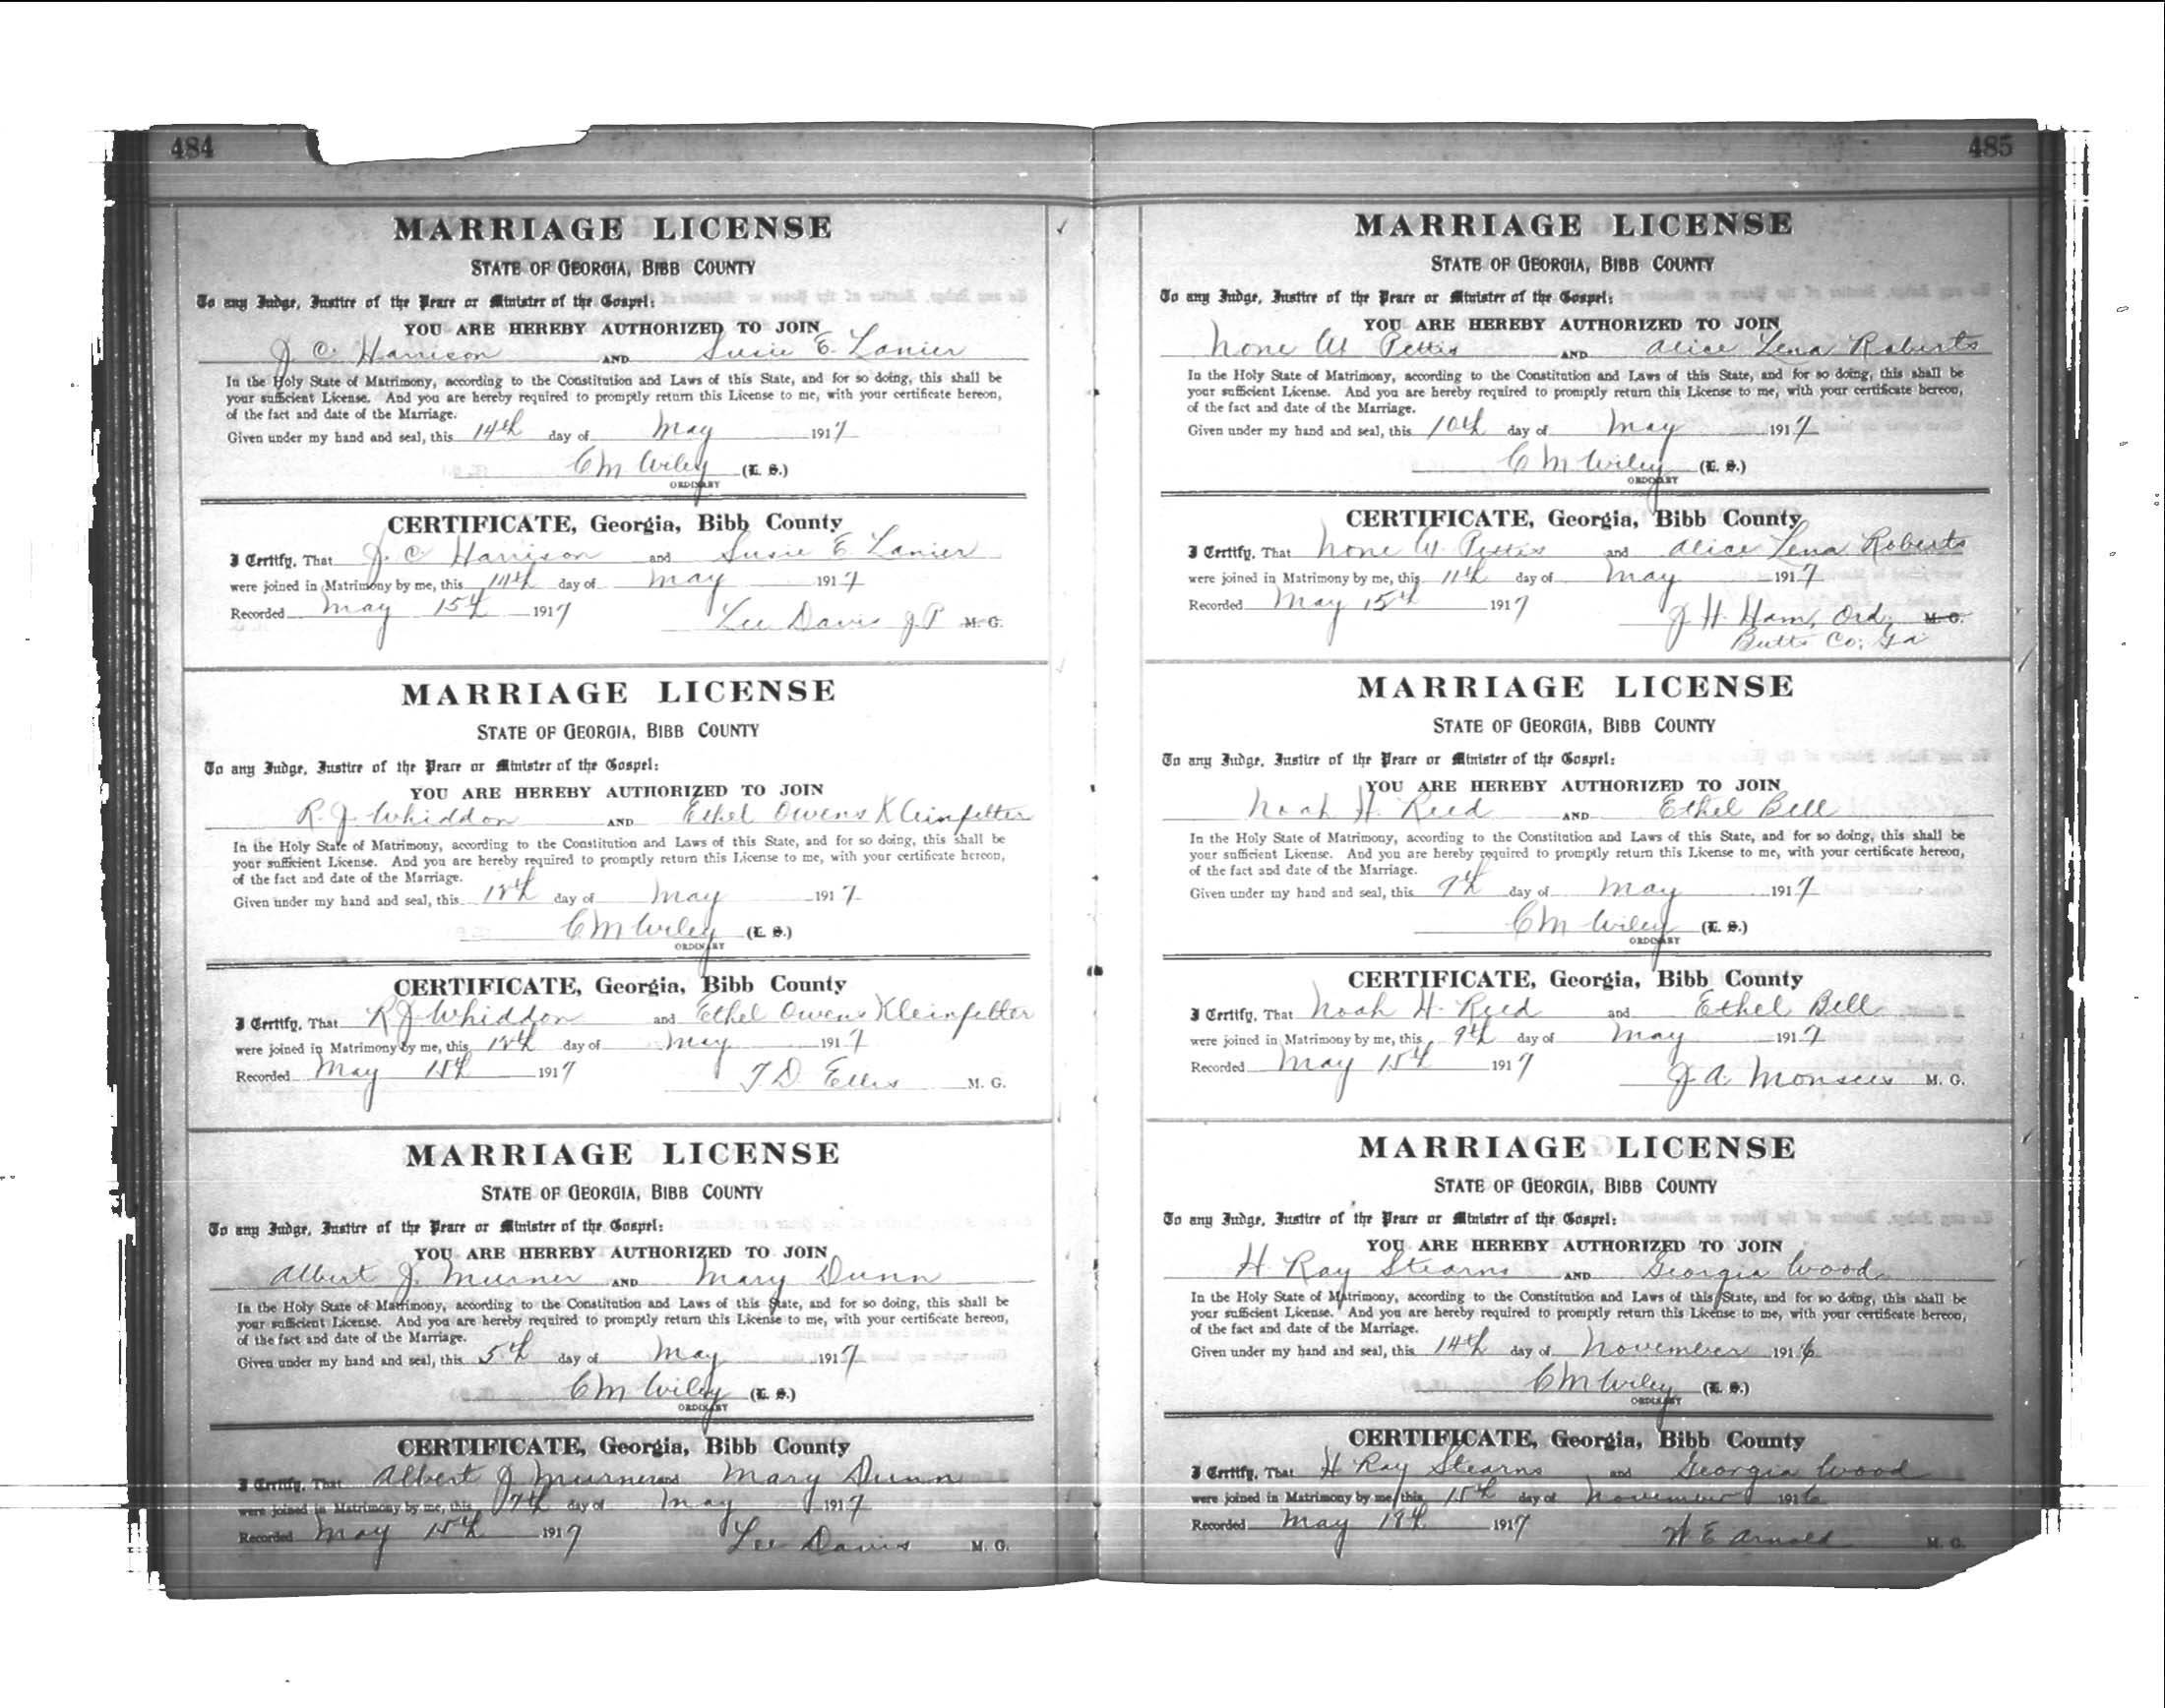 484
MARRIAGE LICENSE
STATE OF GEORGIA, BIBB COUNTY
To any Judge, Justice of the Peace or Minister of the Gospel:
YOU ARE HEREBY AUTHORIZED TO JOIN
J. C. Harrison AND Susie E. Lanier
In the Holy State of Matrimony, according to the Constitution and Laws of this State, and for so doing, this shall be
your sufficient License. And you are hereby required to promptly return this License to me, with your certificate hereon,
of the fact and date of the Marriage.
Given under my hand and seal, this 14th day of May 1917
C M Wiley (L. S.)
ORDINARY
CERTIFICATE, Georgia, Bibb County
I Certify, That J. C. Harrison and Susie E. Lanier
were joined in Matrimony by me, this 14th day of May 1917
Recorded May 15th 1917 Lee Davis J P M. G.
MARRIAGE LICENSE
STATE OF GEORGIA, BIBB COUNTY
To any Judge, Justice of the Peace or Minister of the Gospel:
YOU ARE HEREBY AUTHORIZED TO JOIN
R. J. Whiddon AND Ethel Owens Kleinfelter
In the Holy State of Matrimony, according to the Constitution and Laws of this State, and for so doing, this shall be
your sufficient License. And you are hereby required to promptly return this License to me, with your certificate hereon,
of the fact and date of the Marriage.
Given under my hand and seal, this day of May 1917
C M Wiley (L. S.)
ORDINARY
CERTIFICATE, Georgia, Bibb County
I Certify, That R J Whiddon and Ethel Owens Kleinfelter
were joined in Matrimony by me, this day of May 1917
Recorded May 15th 1917 T. D. Ellis M. G.
MARRIAGE LICENSE
STATE OF GEORGIA, BIBB COUNTY
To any Judge, Justice of the Peace or Minister of the Gospel:
YOU ARE HEREBY AUTHORIZED TO JOIN
Albert J. Murner AND Mary Dunn
In the Holy State of Matrimony, according to the Constitution and Laws of this State, and for so doing, this shall be
your sufficient License. And you are hereby required to promptly return this License to me, with your certificate hereon,
of the fact and date of the Marriage.
Given under my hand and seal, this 5th day of May 1917
C M Wiley (L. S.)
ORDINARY
CERTIFICATE, Georgia, Bibb County
I Certify, That Albert J Murner and Mary Dunn
were joined in Matrimony by me, this day of May 1917
Recorded May 15th 1917 Lee Davis M. G.
485
MARRIAGE LICENSE
STATE OF GEORGIA, BIBB COUNTY
To any Judge, Justice of the Peace or Minister of the Gospel:
YOU ARE HEREBY AUTHORIZED TO JOIN
None W. Pettis AND Alice Lena Roberts
In the Holy State of Matrimony, according to the Constitution and Laws of this State, and for so doing, this shall be
your sufficient License. And you are hereby required to promptly return this License to me, with your certificate hereon,
of the fact and date of the Marriage.
Given under my hand and seal, this 10th day of May 1917
C M Wiley (L. S.)
ORDINARY
CERTIFICATE, Georgia, Bibb County
I Certify, That None W. Pettis and Alice Lena Roberts
were joined in Matrimony by me, this 11th day of May 1917
Recorded May 15th 1917 J H. Ham, Ord, M. G.
Butts Co; Ga
MARRIAGE LICENSE
STATE OF GEORGIA, BIBB COUNTY
To any Judge, Justice of the Peace or Minister of the Gospel:
YOU ARE HEREBY AUTHORIZED TO JOIN
Noah H. Reed AND Ethel Bell
In the Holy State of Matrimony, according to the Constitution and Laws of this State, and for so doing, this shall be
your sufficient License. And you are hereby required to promptly return this License to me, with your certificate hereon,
of the fact and date of the Marriage.
Given under my hand and seal, this 9th day of May 1917
C M Wiley (L. S.)
ORDINARY
CERTIFICATE, Georgia, Bibb County
I Certify, That Noah H. Reed and Ethel Bell
were joined in Matrimony by me, this 9th day of May 1917
Recorded May 15th 1917 J. A. M. G.
MARRIAGE LICENSE
STATE OF GEORGIA, BIBB COUNTY
To any Judge, Justice of the Peace or Minister of the Gospel:
YOU ARE HEREBY AUTHORIZED TO JOIN
H Ray Stearns AND Georgia Wood
In the Holy State of Matrimony, according to the Constitution and Laws of this State, and for so doing, this shall be
your sufficient License. And you are hereby required to promptly return this License to me, with your certificate hereon,
of the fact and date of the Marriage.
Given under my hand and seal, this 14th day of November 1916
C M Wiley (L. S.)
ORDINARY
CERTIFICATE, Georgia, Bibb County
I Certify, That H Ray Stearns and Georgia Wood
were joined in Matrimony by me, this 15th day of November 1916
Recorded May 1917 W E Arnold M. G.